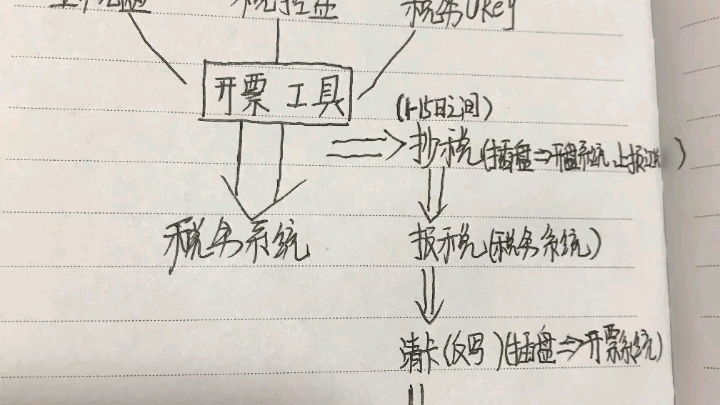 税控盘 税务Ukey
开票工具
(1-15日之间)
抄税(插盘⇒开盘系统,上报汇总)
税务系统
报税(税务系统)
清卡(反写)(插盘⇒开票系统)